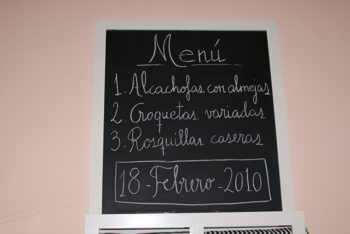 Menú
1. Alcachofas con almejas
2. Croquetas variadas
3. Rosquillas caseras
18-Febrero-2010